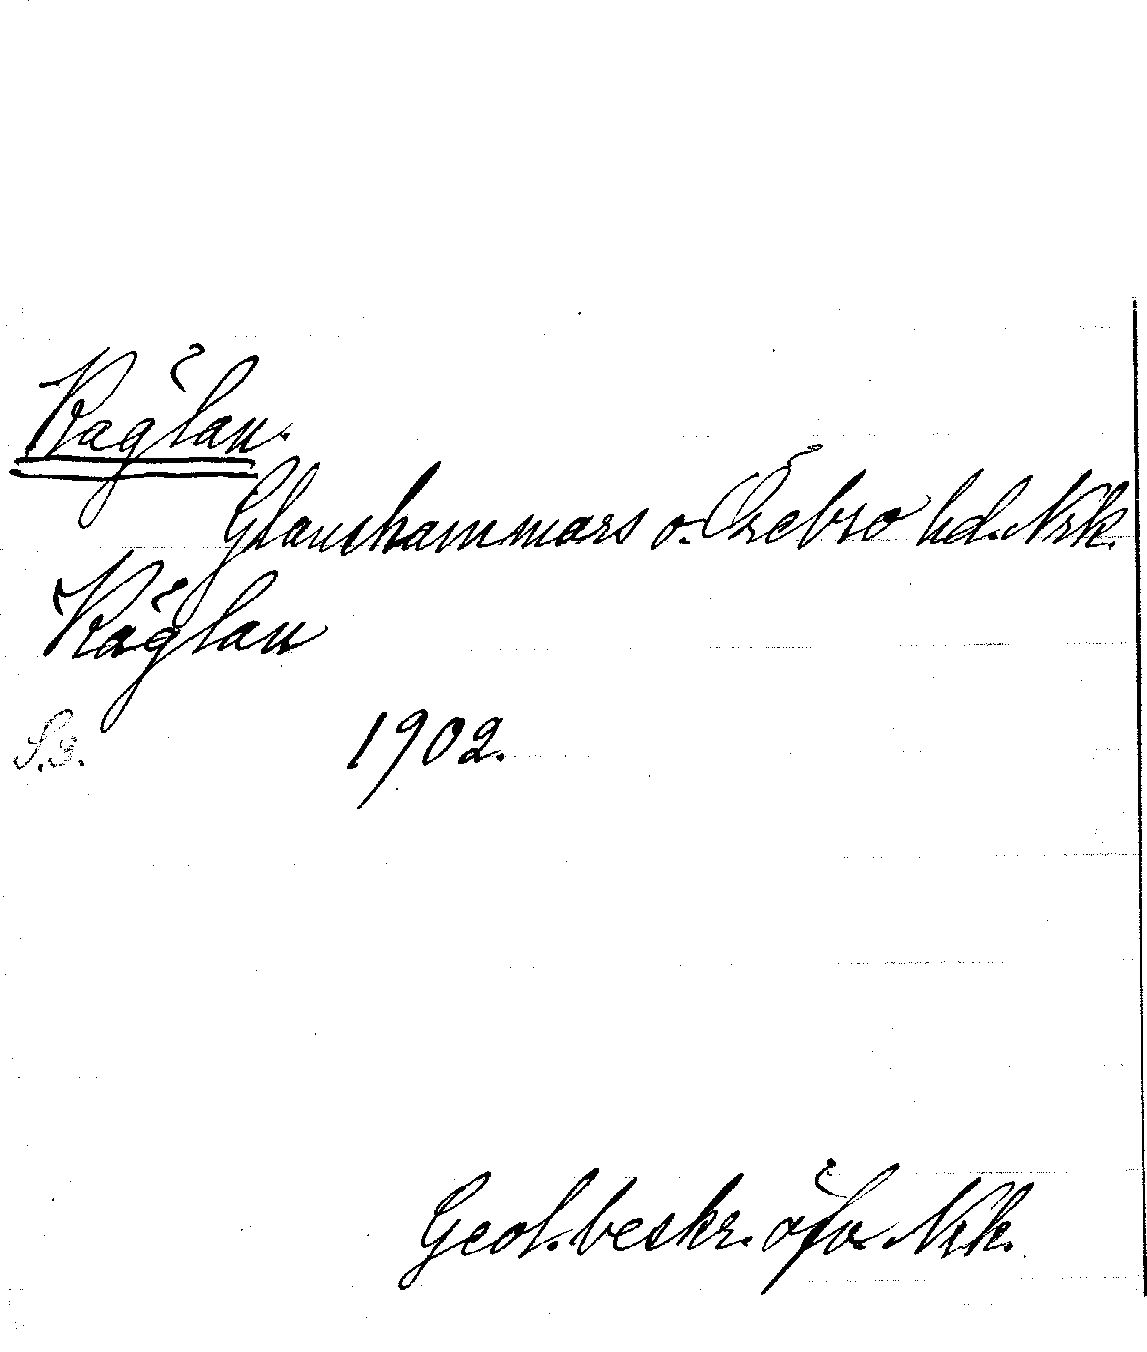 Käglan.
Glanshammars o. Örebro hd. Nrk.
Käglan
S. 3. 1902.
Geol. beskr. öfv. Nrk.